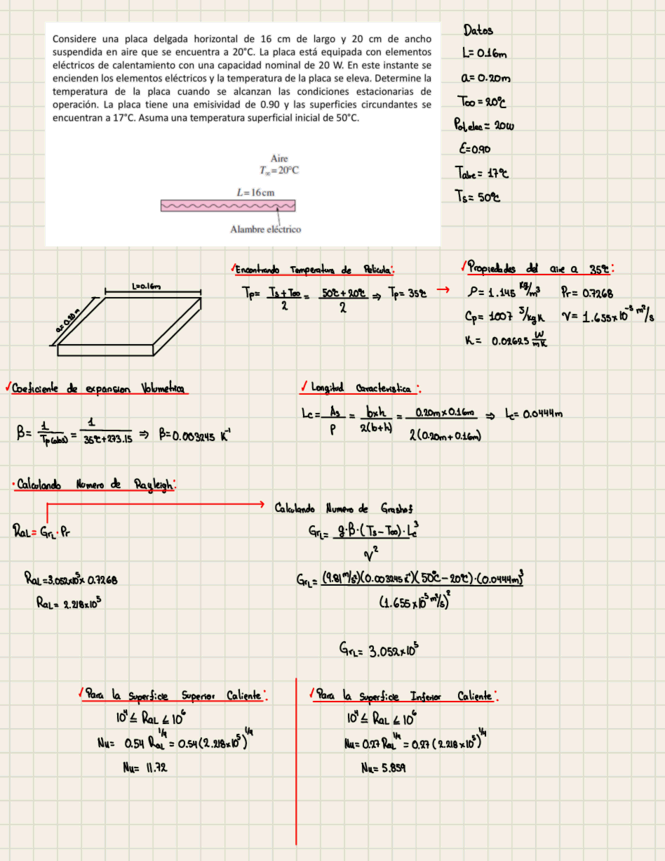 Considere una placa delgada horizontal de 16 cm de largo y 20 cm de ancho
suspendida en aire que se encuentra a 20°C. La placa está equipada con elementos
eléctricos de calentamiento con una capacidad nominal de 20 W. En este instante se
encienden los elementos eléctricos y la temperatura de la placa se eleva. Determine la
temperatura de la placa cuando se alcanzan las condiciones estacionarias de
operación. La placa tiene una emisividad de 0.90 y las superficies circundantes se
encuentran a 17°C. Asuma una temperatura superficial inicial de 50°C.
Aire
T∞=20°C
L=16cm
Alambre eléctrico
Datos
L=0.16m
a=0.20m
T∞=20°C
Pot,elec=20W
ε=0.90
Talre=17°C
Ts=50°C
L=0.16m
a=0.20m
√Encontrando Temperatura de Pelicula:
Tp= Ts+T∞/2 = 50°C+20°C/2 ⇒ Tp=35°C →
√Propiedades del aire a 35°C:
ρ=1.145 kg/m³ Pr=0.7268
Cp=1007 J/kg K ν=1.655x10⁻⁵ m²/s
K= 0.02625 W/mK
√Coeficiente de expansion Volumetrica
β= 1/Tp(abs) = 1/35°C+273.15 ⇒ β=0.003245 K⁻¹
√Longitud Caracteristica:
Lc= As/P = bxh/2(b+h) = 0.20mx0.16m/2(0.20m+0.16m) ⇒ Lc=0.0444m
·Calculando Numero de Rayleigh:
RaL=GrL·Pr
RaL=3.052x10⁵x0.7268
RaL=2.218x10⁵
Calculando Numero de Grashof
GrL= g·β·(Ts-T∞)·Lc³/ν²
GrL= (9.81m/s²)(0.003245K⁻¹)(50°C-20°C)·(0.0444m)³/(1.655x10⁻⁵m²/s)²
GrL=3.052x10⁵
√Para la Superficie Superior Caliente:
10⁴≤RaL≤10⁶
Nu= 0.54RaL^1/4=0.54(2.218x10⁵)^1/4
Nu= 11.72
√Para la Superficie Inferior Caliente:
10⁴≤RaL≤10⁶
Nu=0.27RaL^1/4=0.27(2.218x10⁵)^1/4
Nu=5.859